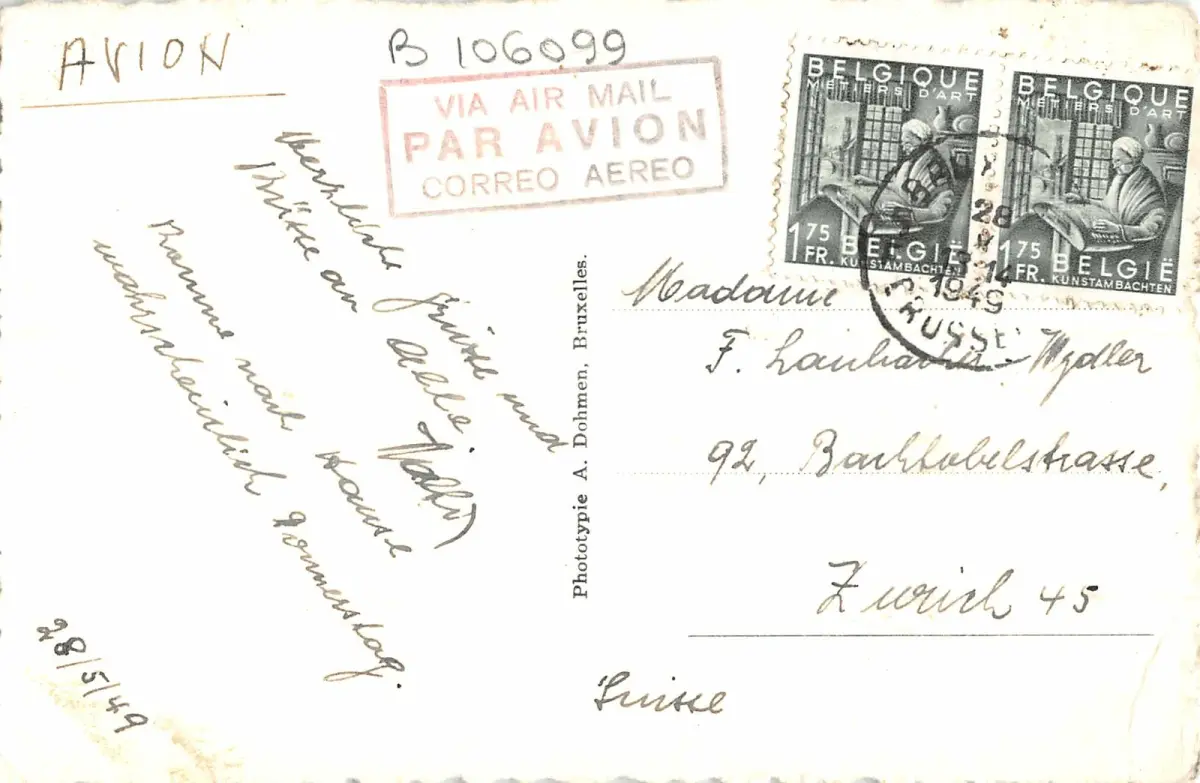 AVION
B 106099
VIA AIR MAIL
PAR AVION
CORREO AEREO
BELGIQUE
MÉTIERS D'ART
1 75 FR. BELGIË
KUNSTAMBACHTEN
BELGIQUE
MÉTIERS D'ART
1 75 FR. BELGIË
KUNSTAMBACHTEN
28 V
13-14
1949
Herzliche Grüsse und
Küsse an alle.
Komme nach Hause
wahrscheinlich Donnerstag.
28/5/49
Phototypie A. Dohmen, Bruxelles.
Madame
F. Wydler
92, Bachtobelstrasse,
Zurich 45
Suisse